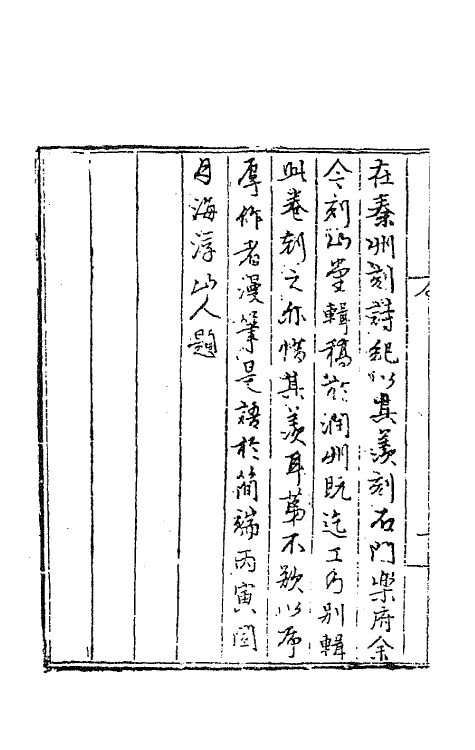 在秦州刻詩紀以其羨刻石門樂府余
今刻山堂輯稿於潤州既迄工乃別輯
此卷刻之亦惜其羨耳第不欲以序
辱作者漫筆是語於簡端丙寅閏
月海浮山人題